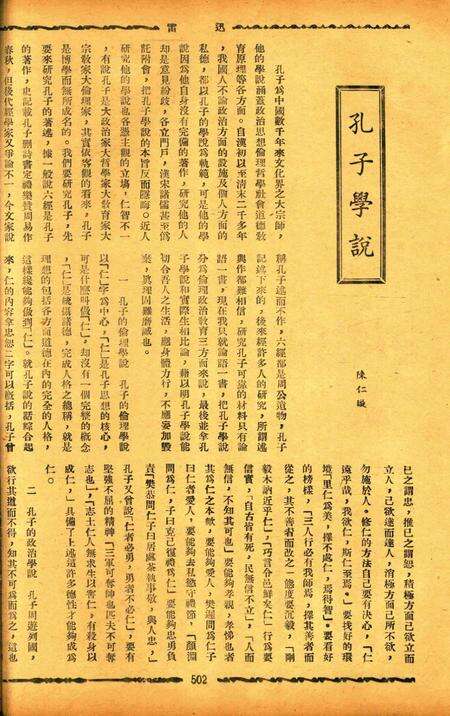 迅雷
孔子學說
陳仁璇
孔子為中國數千年來文化界之大宗師，
他的學說涵蓋政治思想倫理哲學社會道德教
育原理等各方面。自漢初以至清末二千多年
，我國人不論政治方面的設施及個人方面的
私德，都以孔子的學說為軌範，可是他的學
說因為他自身沒有完備的著作，研究他的人
却是意見紛歧，各立門戶，漢宋諸儒甚至偽
託附會，把孔子學說的本旨反而隱晦。近人
研究他的學說也各憑主觀的立場，仁智不一
，有說孔子是大政治家大哲學家大教育家大
宗教家大倫理家，其實依客觀的看來，孔子
是博學而無所成名的。我們要研究孔子，先
要來研究孔子的著述，據一般說六經是孔子
的著作，史記載孔子刪詩書定禮樂贊周易作
春秋，但後代經學家又爭論不一，今文家說
稱孔子述而不作，六經都是周公遺物，孔子
記述下來的，後來經許多人的研究，所謂述
與作都難相信，研究孔子可靠的材料只有論
語一書，現在我只就論語一書，把孔子學說
分為倫理政治教育三方面來說，最後並拿孔
子學說和實際生相比論，藉以明孔子學說能
切合吾人之生活，應身體力行，不應妄加毀
棄，真理固難磨滅也。
一　孔子的倫理學說　孔子的倫理學說
以「仁」字為中心，「仁」是孔子思想的核心，
可是什麼叫做「仁」，却沒有一個完整的概念
，「仁」是統攝諸德，完成人格之總稱，就是
理想的包括各方面道德在內的完全的人格，
這樣纔能夠做到「仁」。就孔子說的話綜合起
來，仁的內容拿忠恕二字可以概括，孔子嘗
已之謂忠，推己之謂恕，積極方面己欲立而
立人，己欲達而達人，消極方面己所不欲，
勿施於人。修仁的方法自己要有決心，「仁
遠乎哉，我欲仁，斯仁至焉。」要找好的環
境「里仁為美，擇不處仁，焉得智。」要看好
的榜樣，「三人行必有我師焉，擇其善者而
從之，其不善者而改之」態度要沉毅，「剛
毅木訥近乎仁」，「巧言令色鮮矣仁」行為要
信實，「自古皆有死，民無信不立」，「人而
無信，不知其可也」要能夠孝親，孝悌也者
其為仁之本歟，要能夠愛人，樊遲問仁子
曰仁者愛人，要能夠去私慾守禮節，「顏淵
問為仁，子曰克己復禮為仁」要能夠忠勇負
責「樊遲問仁子曰居處恭執事敬，與人忠」，
孔子又嘗說「仁者必勇，勇者不必仁」，要有
堅強不屈的精神「三軍可奪帥也匹夫不可奪
志也」，「志士仁人無求生以害仁，有殺身以
成仁，」具備了上述這許多德性才能夠成為
仁。
二　孔子的政治學說　孔子周遊列國，
欲行其道而不得，知其不可為而為之，這也
502